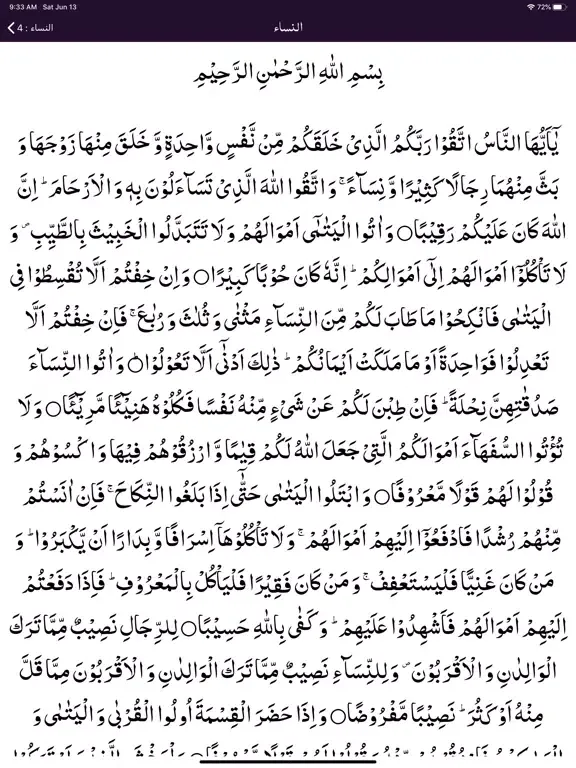 9:33 AM Sat Jun 13 72%
النساء : 4
النساء
بِسْمِ اللهِ الرَّحْمٰنِ الرَّحِيْمِ
يٰۤاَيُّهَا النَّاسُ اتَّقُوْا رَبَّكُمُ الَّذِىْ خَلَقَكُمْ مِّنْ نَّفْسٍ وَّاحِدَةٍ وَّخَلَقَ مِنْهَا زَوْجَهَا وَ
بَثَّ مِنْهُمَا رِجَالًا كَثِيْرًا وَّنِسَآءً ۚ وَاتَّقُوا اللهَ الَّذِىْ تَسَآءَلُوْنَ بِهٖ وَالْاَرْحَامَ ؕ اِنَّ
اللهَ كَانَ عَلَيْكُمْ رَقِيْبًا○ وَاٰتُوا الْيَتٰمٰٓى اَمْوَالَهُمْ وَلَا تَتَبَدَّلُوا الْخَبِيْثَ بِالطَّيِّبِ ۪ وَ
لَا تَاْكُلُوْۤا اَمْوَالَهُمْ اِلٰٓى اَمْوَالِكُمْ ؕ اِنَّهٗ كَانَ حُوْبًا كَبِيْرًا○ وَاِنْ خِفْتُمْ اَلَّا تُقْسِطُوْا فِى
الْيَتٰمٰى فَانْكِحُوْا مَا طَابَ لَكُمْ مِّنَ النِّسَآءِ مَثْنٰى وَثُلٰثَ وَرُبٰعَ ۚ فَاِنْ خِفْتُمْ اَلَّا
تَعْدِلُوْا فَوَاحِدَةً اَوْ مَا مَلَكَتْ اَيْمَانُكُمْ ؕ ذٰلِكَ اَدْنٰٓى اَلَّا تَعُوْلُوْا○ وَاٰتُوا النِّسَآءَ
صَدُقٰتِهِنَّ نِحْلَةً ؕ فَاِنْ طِبْنَ لَكُمْ عَنْ شَىْءٍ مِّنْهُ نَفْسًا فَكُلُوْهُ هَنِيْٓئًا مَّرِيْٓئًا○ وَلَا
تُؤْتُوا السُّفَهَآءَ اَمْوَالَكُمُ الَّتِىْ جَعَلَ اللهُ لَكُمْ قِيٰمًا وَّارْزُقُوْهُمْ فِيْهَا وَاكْسُوْهُمْ وَ
قُوْلُوْا لَهُمْ قَوْلًا مَّعْرُوْفًا○ وَابْتَلُوا الْيَتٰمٰى حَتّٰٓى اِذَا بَلَغُوا النِّكَاحَ ۚ فَاِنْ اٰنَسْتُمْ
مِّنْهُمْ رُشْدًا فَادْفَعُوْۤا اِلَيْهِمْ اَمْوَالَهُمْ ۚ وَلَا تَاْكُلُوْهَاۤ اِسْرَافًا وَّبِدَارًا اَنْ يَّكْبَرُوْا ؕ وَ
مَنْ كَانَ غَنِيًّا فَلْيَسْتَعْفِفْ ۚ وَمَنْ كَانَ فَقِيْرًا فَلْيَاْكُلْ بِالْمَعْرُوْفِ ؕ فَاِذَا دَفَعْتُمْ
اِلَيْهِمْ اَمْوَالَهُمْ فَاَشْهِدُوْا عَلَيْهِمْ ؕ وَكَفٰى بِاللهِ حَسِيْبًا○ لِلرِّجَالِ نَصِيْبٌ مِّمَّا تَرَكَ
الْوَالِدٰنِ وَالْاَقْرَبُوْنَ ۪ وَلِلنِّسَآءِ نَصِيْبٌ مِّمَّا تَرَكَ الْوَالِدٰنِ وَالْاَقْرَبُوْنَ مِمَّا قَلَّ
مِنْهُ اَوْ كَثُرَ ؕ نَصِيْبًا مَّفْرُوْضًا○ وَاِذَا حَضَرَ الْقِسْمَةَ اُولُوا الْقُرْبٰى وَالْيَتٰمٰى وَ